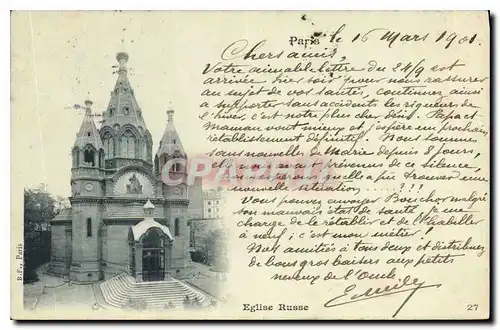 Paris, le 16 Mars 1901.
Chers amis,
Votre aimable lettre du 24/9 est
arrivée hier soir, pour nous rassurer
au sujet de vos santés, continuez ainsi
à supporter sans accidents les rigueurs de
l'hiver, c'est notre plus cher désir. Papa et
Maman vont mieux et j'espère un prochain
rétablissement définitif. Nous sommes
sans nouvelle de depuis 8 jours,
et nous prévenus de ce silence
nouvelle situation ....???!
Vous pouvez envoyer Bouchor malgré
son mauvais état de santé je me
charge de le remettre et de l'habiller
à neuf, c'est mon métier!
Nos amitiés à Tous deux et distribuez
de bons gros baisers aux petits
neveux de l'Oncle.
Emile
B.F., Paris
Eglise Russe
27